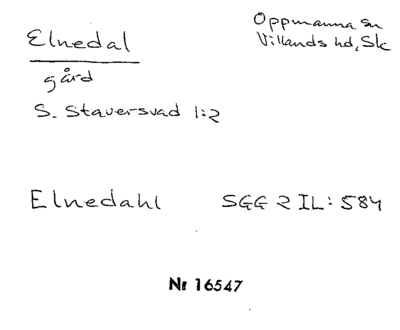 Elnedal
Oppmanna sn
Villands hd, Sk
gård
S. Staversvad 1:2
Elnedahl SGG 2 IL: 584
Nr 16547